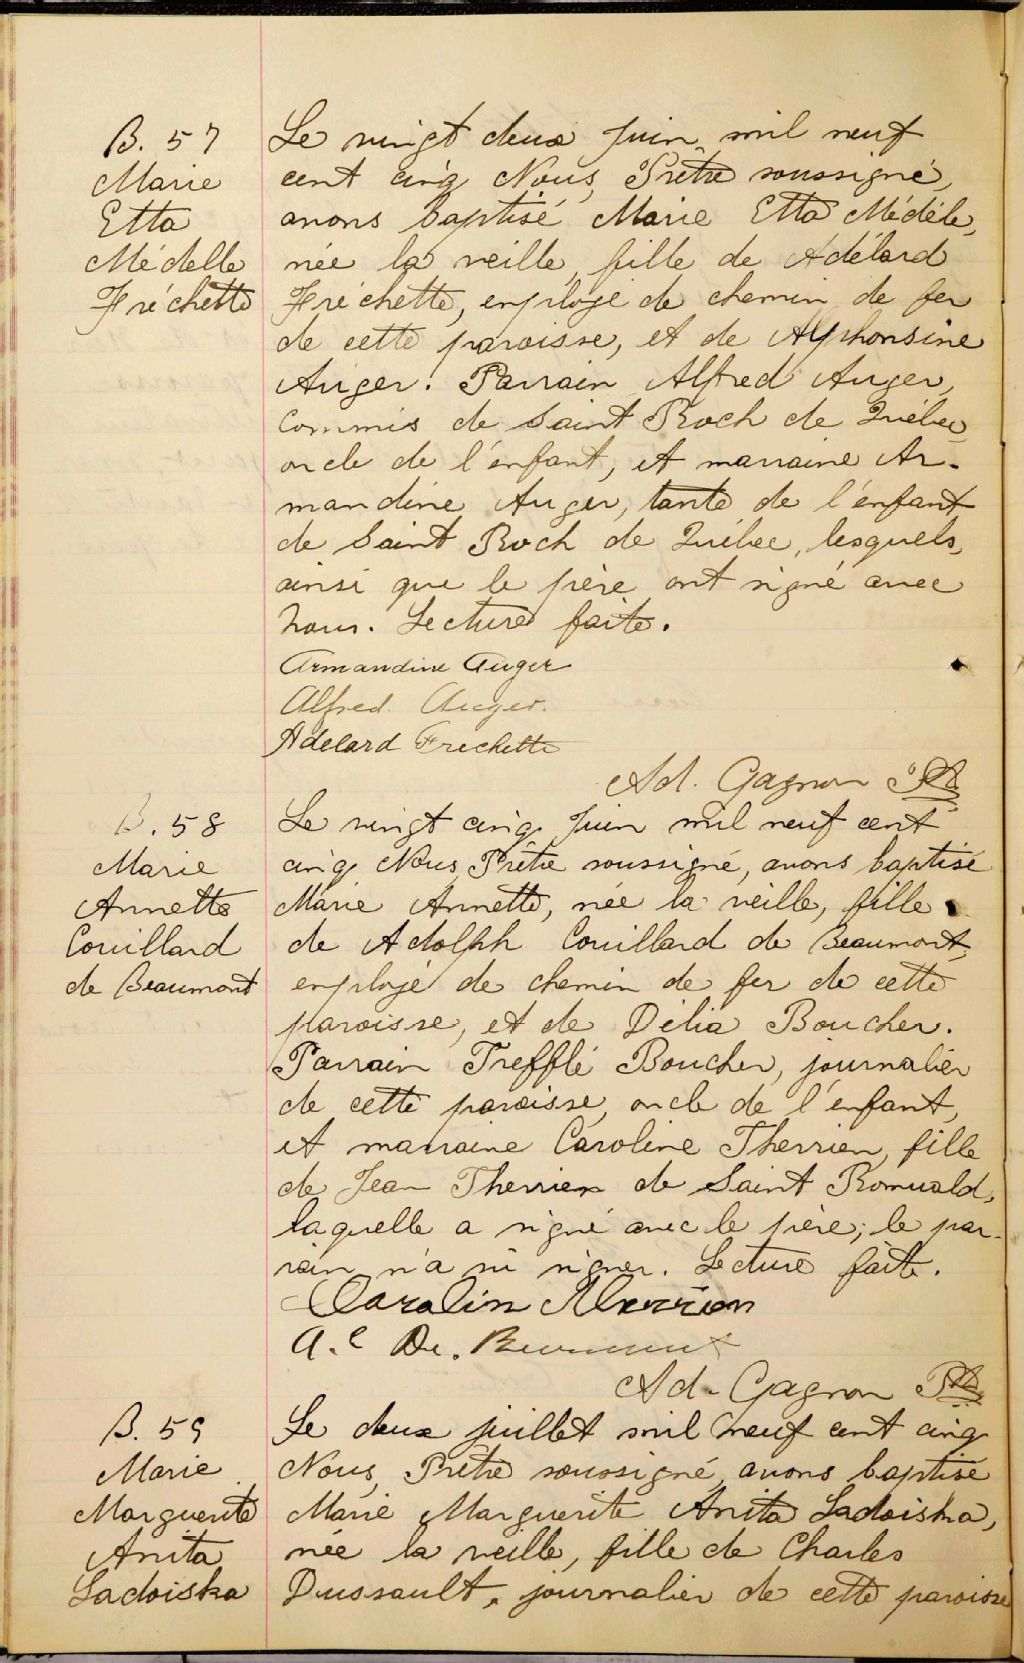 B. 57
Marie
Etta
Médelle
Fréchette
Le vingt deux Juin, mil neuf
cent cinq Nous, Prêtre soussigné,
avons baptisé Marie Etta Médèle,
née la veille, fille de Adélard
Fréchette, employé de chemin de fer
de cette paroisse, et de Alphonsine
Auger. Parrain Alfred Auger,
Commis de Saint Roch de Québec
oncle de l'enfant, et marraine Ar-
mandine Auger, tante de l'enfant
de Saint Roch de Québec, lesquels,
ainsi que le père ont signé avec
nous. Lecture faite.
Armandine Auger
Alfred Auger.
Adelard Frechette
Ad. Gagnon Ptr
B. 58
Marie
Annette
Couillard
de Beaumont
Le vingt cinq Juin mil neuf cent
cinq Nous, Prêtre soussigné, avons baptisé
Marie Annette, née la veille, fille
de Adolph Couillard de Beaumont,
employé de chemin de fer de cette
paroisse, et de Délia Boucher.
Parrain Trefflé Boucher, journalier
de cette paroisse, oncle de l'enfant,
et marraine Caroline Therrien, fille
de Jean Therrien de Saint Romuald,
laquelle a signé avec le père; le par-
rain n'a su signer. Lecture faite.
Carolin Therrien
A. C De. Beaumont
Ad. Gagnon Ptr
B. 59
Marie
Marguerite
Anita
Ladoiska
Le deux juillet mil neuf cent cinq
Nous, Prêtre soussigné, avons baptisé
Marie Marguerite Anita Ladoiska,
née la veille, fille de Charles
Dussault, journalier de cette paroisse